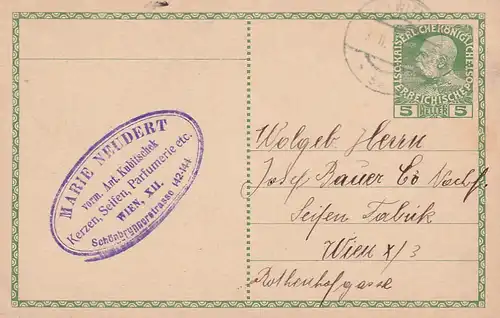 MARIE NEUDERT
vorm. Ant. Kubitschek
Kerzen, Seifen, Parfumerie etc.
WIEN, XII.
Schönbrunnerstrasse 142-144
KAISERLICHE KÖNIGLICHE
ÖSTERREICHISCHE POST
5 HELLER 5
Wolgeb. Herrn
Josef Bauer Co Nachf.
Seifen Fabrik
Wien X/3
Rothenhofgasse